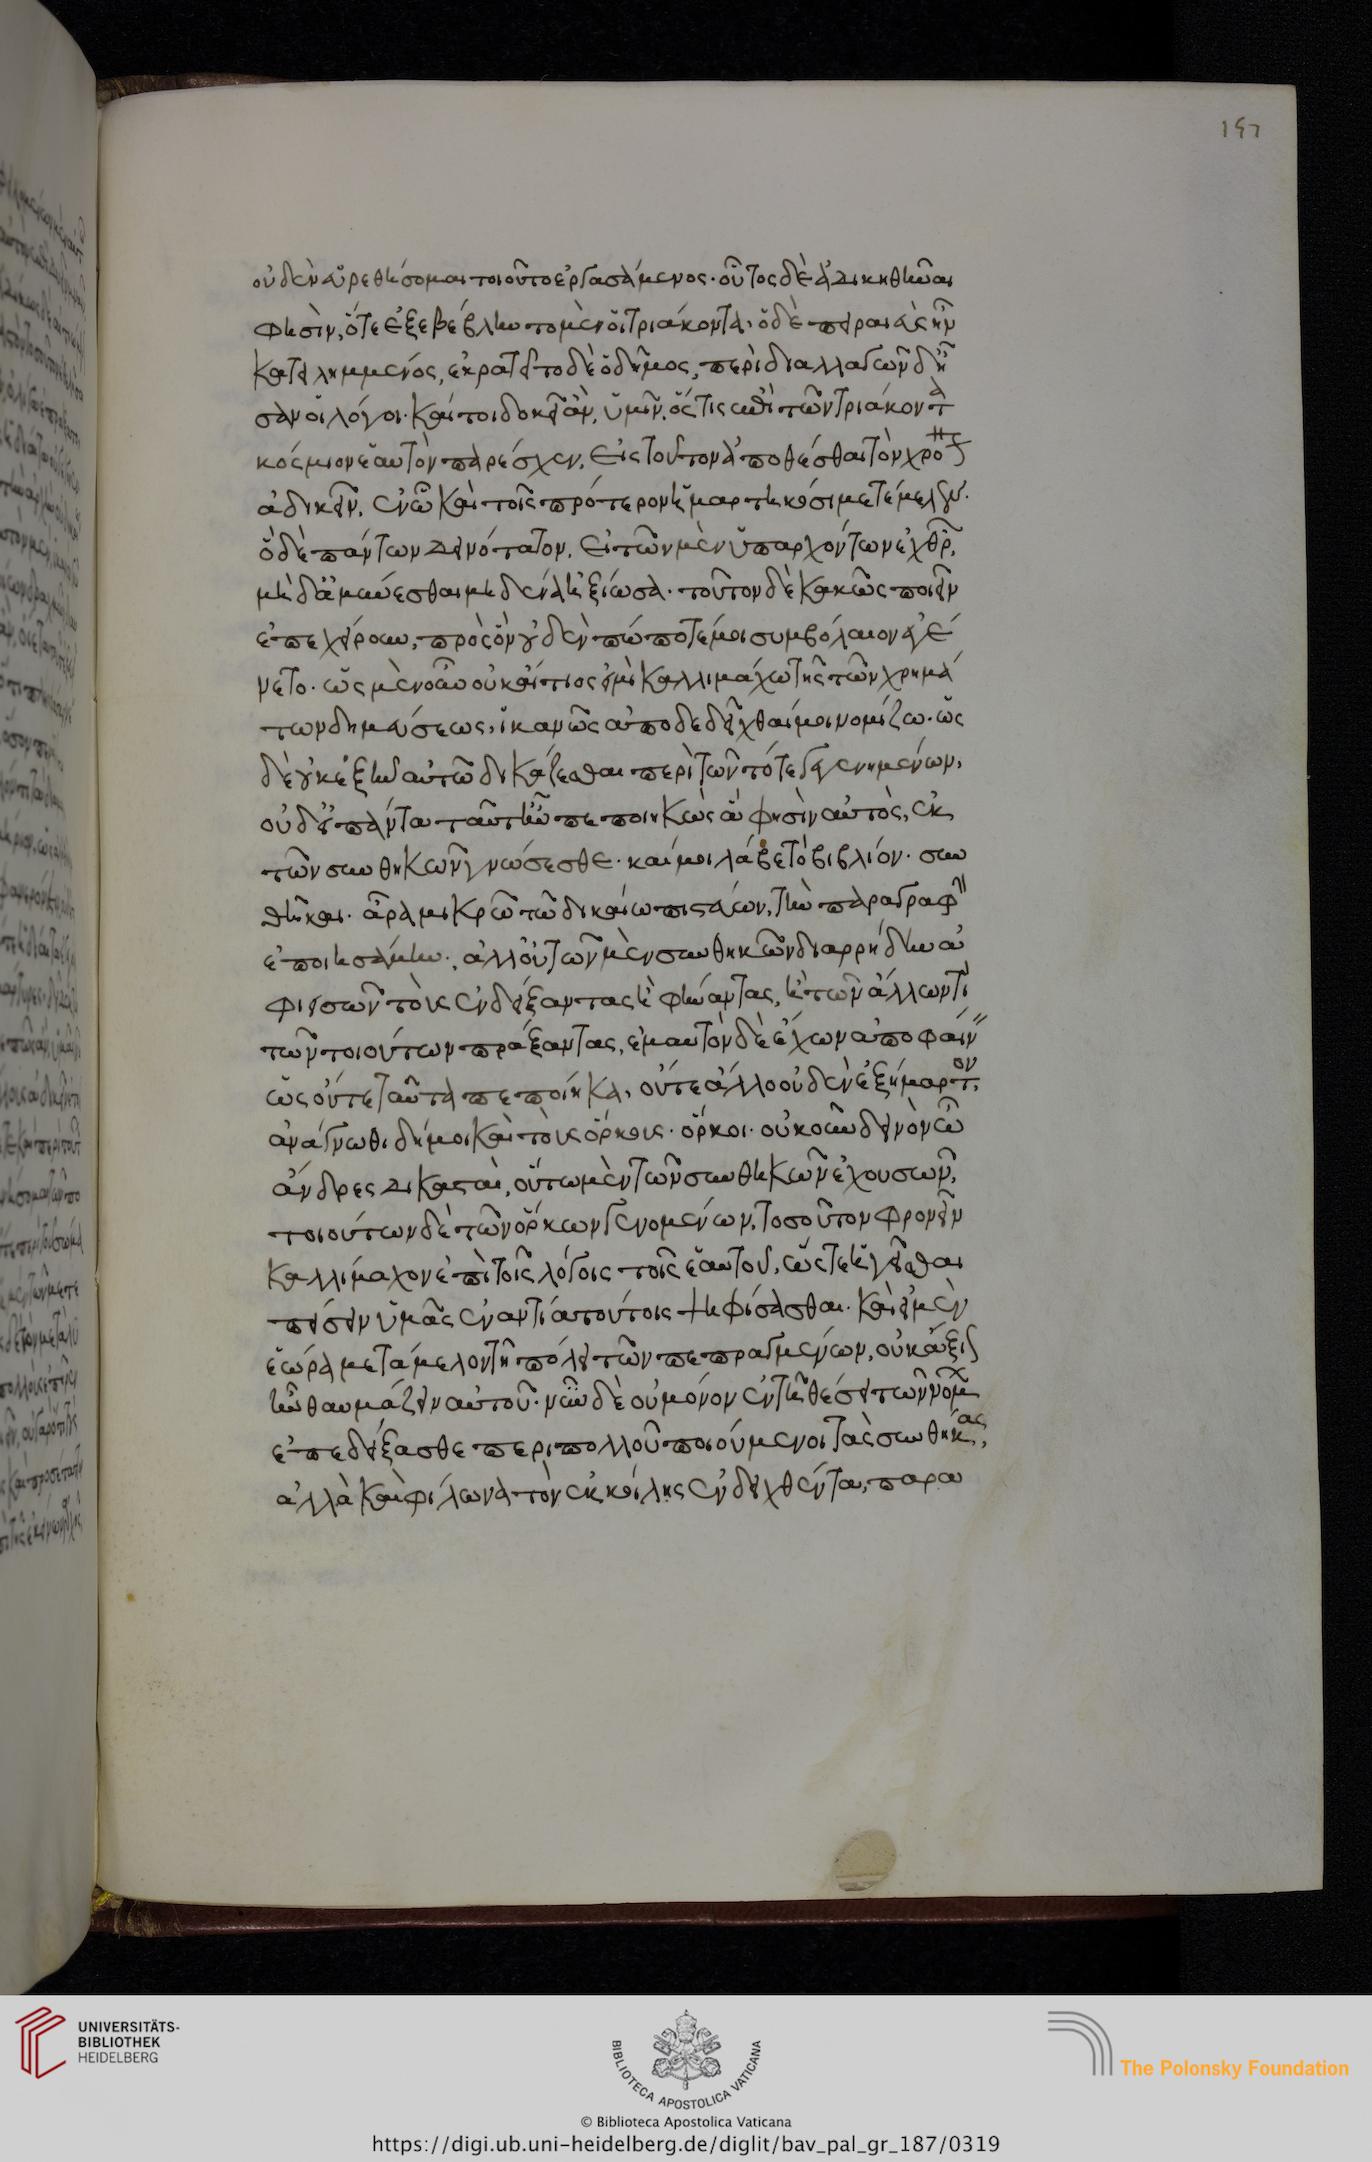 197
οὐδὲν εὑρεθήσομαι τοιοῦτο ἐργασάμενος· οὗτος δὲ ἀδικηθῆναι
φησὶν, ὅτε ἐξεβέβληντο μὲν οἱ τριάκοντα, ὁ δὲ πειραιὰς ἦν
κατειλημμένος, ἐκράτει το δὲ ὁ δῆμος, περὶ διαλλαγῶν δ' ἦ
σαν οἱ λόγοι. καί τοι δοκεῖ ἂν, ὑμῖν, ὅστις ἐπὶ τῶν τριάκοντα
κόσμιον ἑαυτὸν παρέσχεν, εἰς τοῦτον ἀποθέσθαι τὸν χρόνον
ἀδικεῖν, ἐν ᾧ καὶ τοῖς πρότερον ἡμαρτηκόσι μετέμελεν.
ὃ δὲ πάντων δεινότατον, εἰ τῶν μὲν ὑπαρχόντων ἐχθρῶν,
μηδ' ἀμύνεσθαι μηδένα ἠξίωσα. τοῦτον δὲ κακῶς ποιεῖν
ἐπεχείρουν, πρὸς ὃν οὐδὲν πώποτέ μοι συμβόλαιον ἐγέ
νετο. ὡς μὲν οὖν οὐκ αἴτιος εἰμὶ καλλιμάχω τῆς τῶν χρημά
των δημεύσεως, ἱκανῶς ἀποδεδεῖχθαί μοι νομίζω. ὡς
δὲ οὐκ ἐξῆν αὐτῶ δικάζεσθαι περὶ τῶν τότε γεγενημένων,
οὐδ' εἰ πάντα ταῦτ' ἦν πεποιηκὼς ἅ φησὶν αὐτὸς, ἐκ
τῶν συνθηκῶν γνώσεσθε. καί μοι λάβε τὸ βιβλίον. συν
θῆκαι. ἆρα μικρῶ τῶ δικαίω πιστεύων, τὴν παραγραφὴν
ἐποιησάμην., ἀλλ' οὐ τῶν μὲν συνθηκῶν διαρρήδην ἀ
φιεισῶν τοὺς ἐνδείξαντας ἢ φήναντας, ἢ τῶν ἄλλων τι
τῶν τοιούτων πράξαντας, ἐμαυτὸν δὲ ἔχων ἀποφαίνειν
ὡς οὔτε ταῦτα πεποίηκα, οὔτε ἄλλο οὐδὲν ἐξήμαρτον,
ἀνάγνωθι δή μοι καὶ τοὺς ὅρκους. ὅρκοι. οὐκοῦν δεινὸν ὦ
ἄνδρες δικασταὶ, οὕτω μὲν τῶν συνθηκῶν ἐχουσῶν,
τοιούτων δὲ τῶν ὅρκων γενομένων, τοσοῦτον φρονεῖν
καλλίμαχον ἐπὶ τοῖς λόγοις τοῖς ἑαυτοῦ, ὥστε ἡγεῖσθαι
πείσειν ὑμᾶς ἐναντία τούτοις ψηφίσασθαι. καὶ εἰ μὲν
ἑώρα μεταμέλον τῆ πόλει τῶν πεπραγμένων, οὐκ ἄξιον
ἦν θαυμάζειν αὐτοῦ. νῦν δὲ οὐ μόνον ἐν τῆ θέσει τῶν νόμων
ἐπεδείξασθε περι πολλοῦ ποιούμενοι τὰς συνθήκας,
ἀλλὰ καὶ φίλωνα τὸν ἐκ κοίλης ἐνδειχθέντα, παρα
UNIVERSITÄTS-
BIBLIOTHEK
HEIDELBERG
BIBLIOTECA APOSTOLICA VATICANA
The Polonsky Foundation
© Biblioteca Apostolica Vaticana
https://digi.ub.uni-heidelberg.de/diglit/bav_pal_gr_187/0319